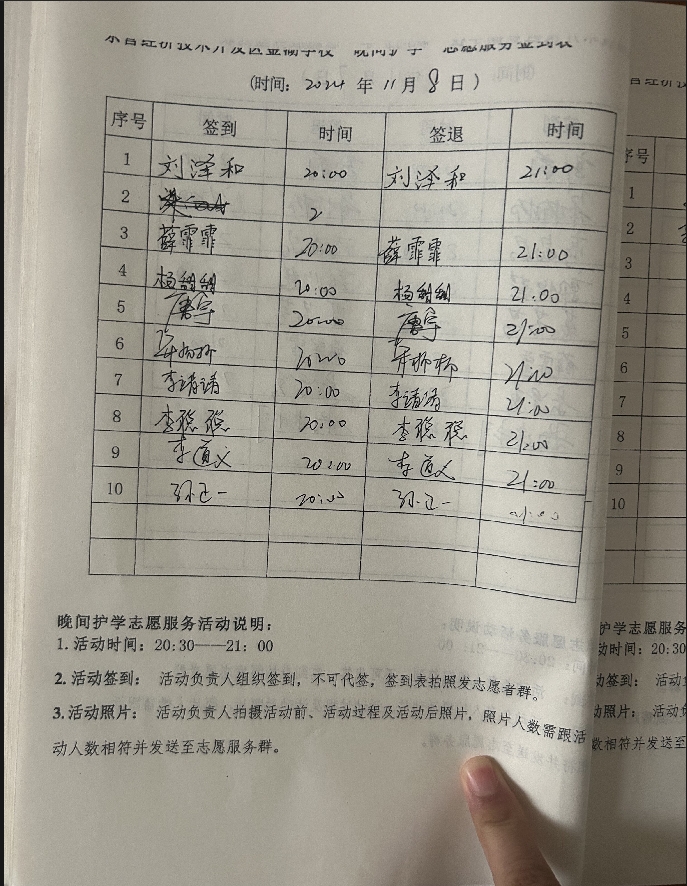 东营经济技术开发区金湖学校“晚间护学”志愿服务签到表
(时间: 2024 年 11 月 8 日)
序号 签到 时间 签退 时间
1 刘泽和 20:00 刘泽和 21:00
2 2
3 薛霏霏 20:00 薛霏霏 21:00
4 杨甜甜 20:00 杨甜甜 21:00
5 唐宇 20:00 唐宇 21:00
6 20:00 21:00
7 李靖靖 20:00 李靖靖 21:00
8 李聪聪 20:00 李聪聪 21:00
9 李道义 20:00 李道义 21:00
10 孙正一 20:00 孙正一 21:00
晚间护学志愿服务活动说明:
1.活动时间: 20:30——21: 00
2.活动签到: 活动负责人组织签到, 不可代签, 签到表拍照发志愿者群。
3.活动照片: 活动负责人拍摄活动前、活动过程及活动后照片, 照片人数需跟活
动人数相符并发送至志愿服务群。
序号
1
2
3
4
5
6
7
8
9
10
护学志愿服务
动时间: 20:30
动签到: 活动
动照片: 活动负
数相符并发送至